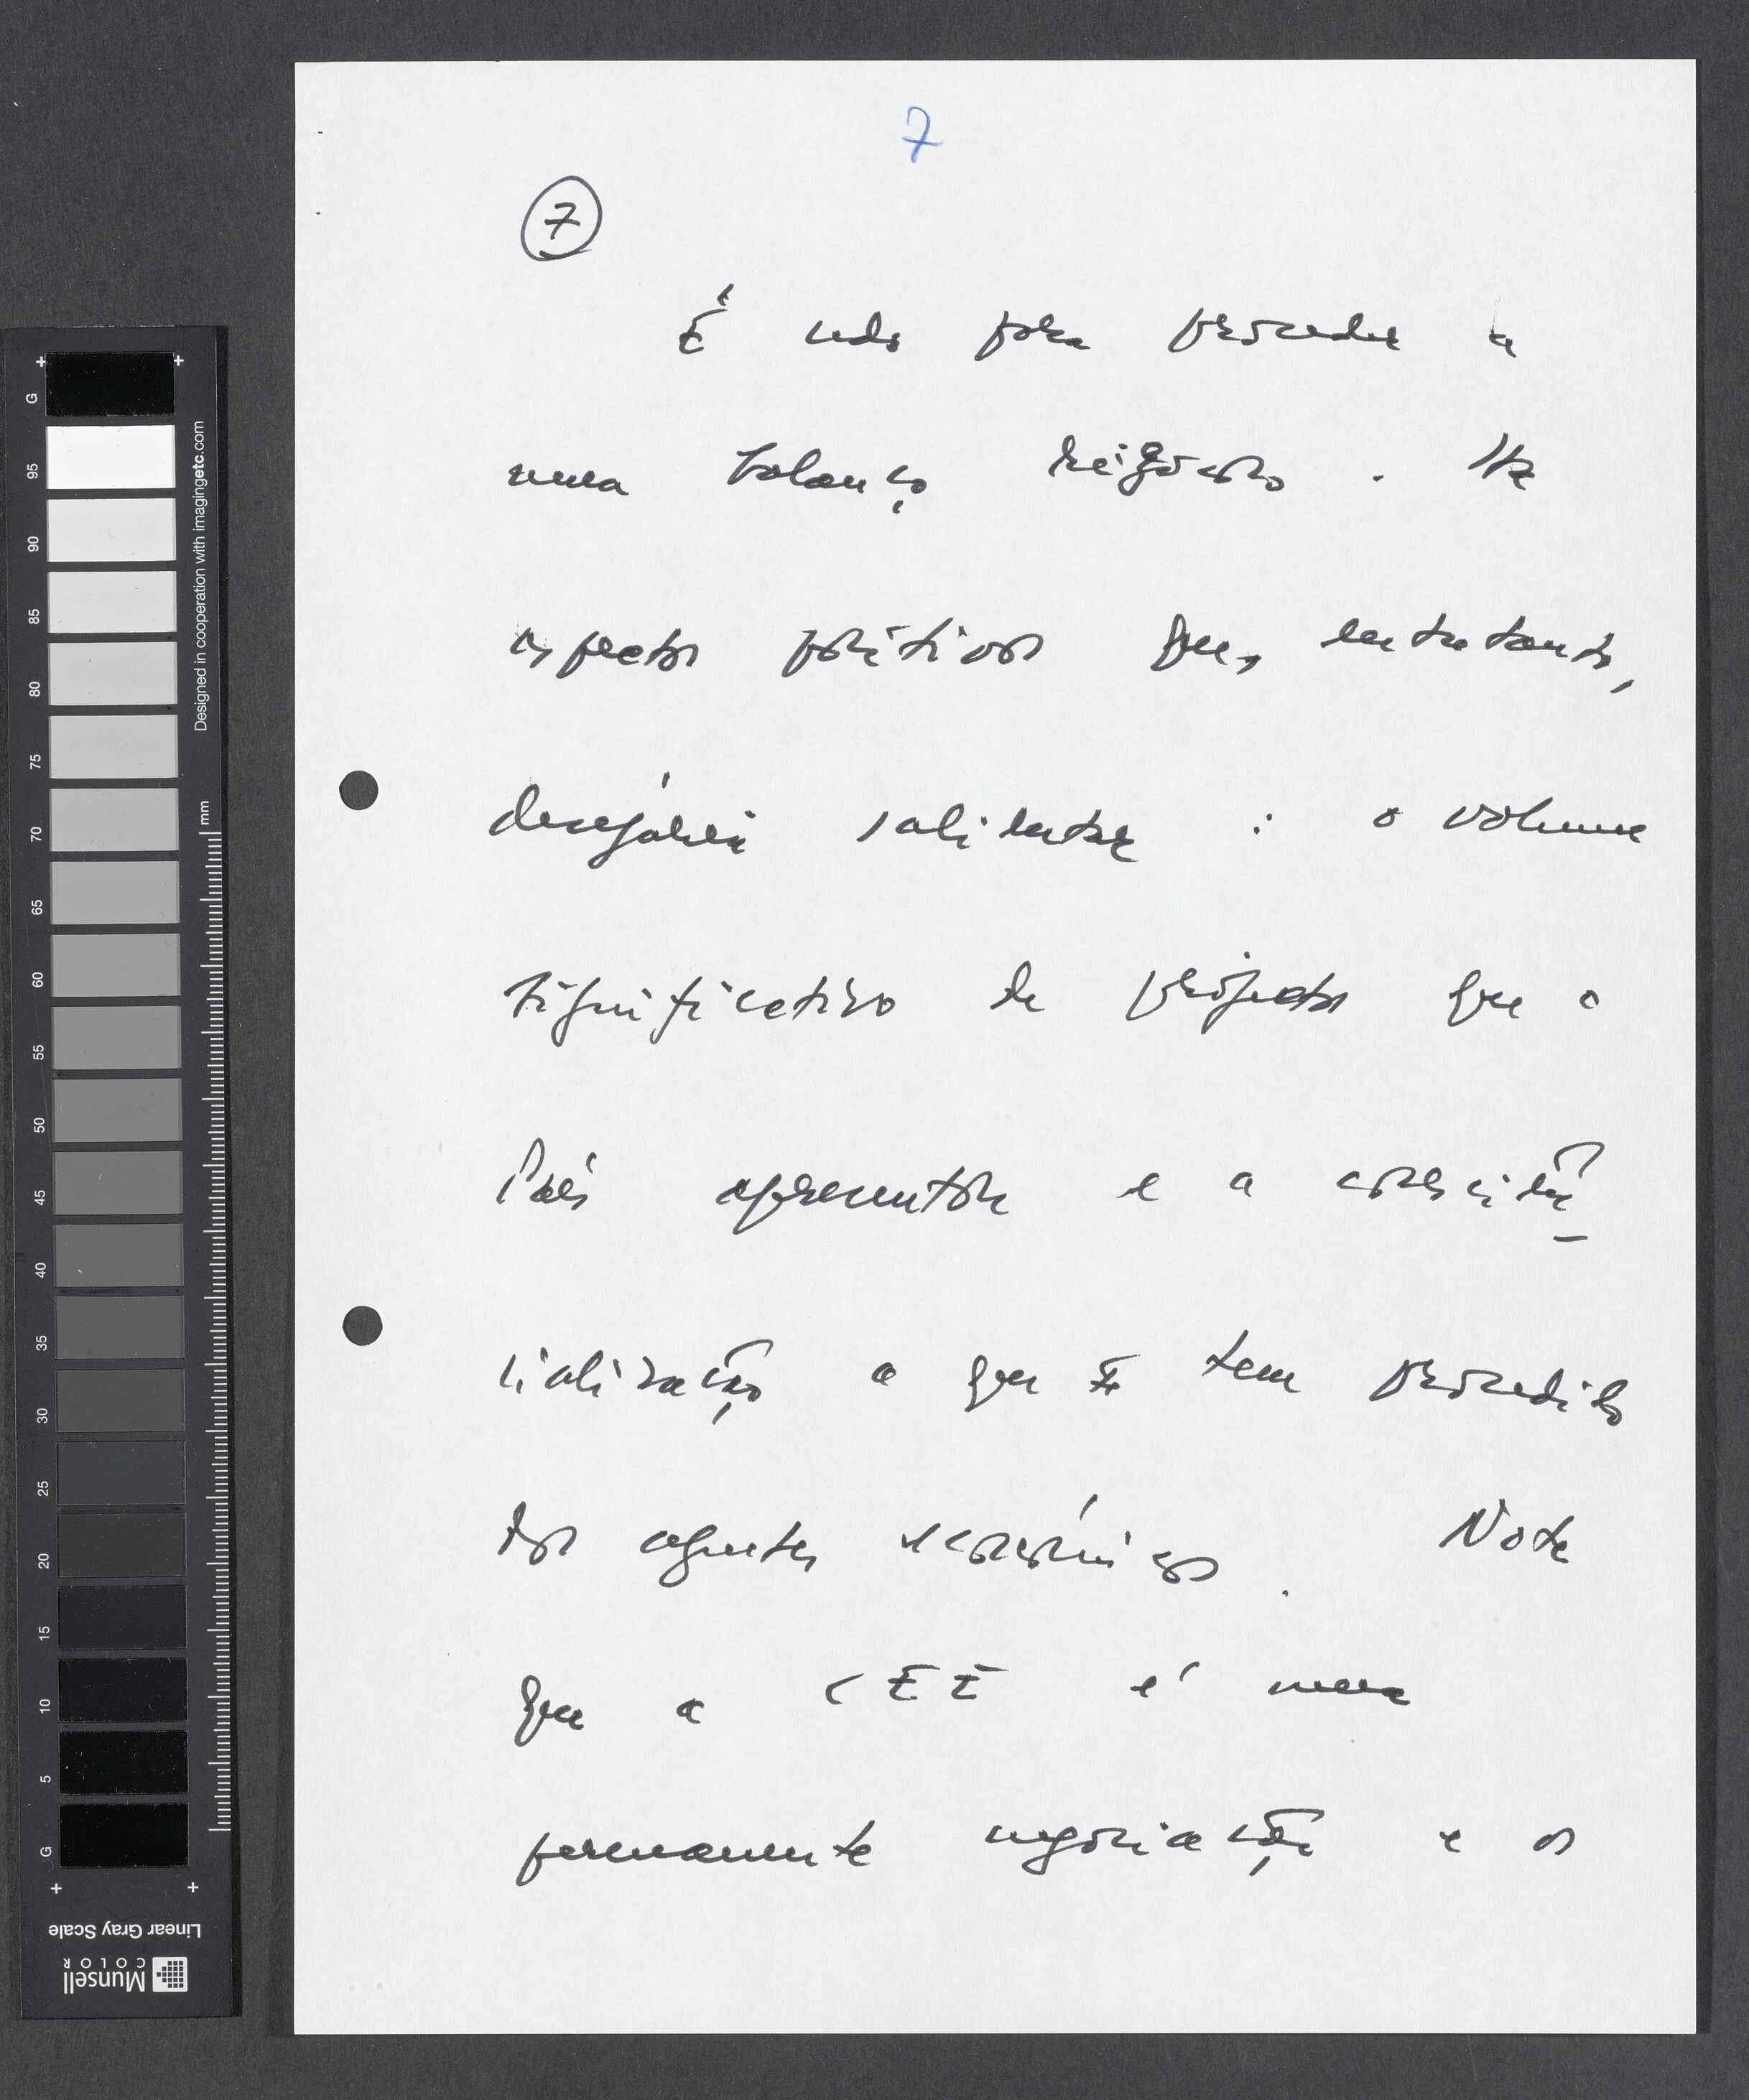 7
7
É cedo para proceder a
um balanço rigoroso. Há
aspectos positivos que, entretanto,
desejaria salientar: o volume
significativo de projectos que o
País apresentou e a consciên-
cialização a que se tem procedido
dos agentes económicos. Note
que a CEE é uma
permanente negociação e os
Designed in cooperation with imagingetc.com
mm
G
95
90
85
80
75
70
65
60
55
50
45
40
35
30
25
20
15
10
5
G
Linear Gray Scale
Munsell
COLOR